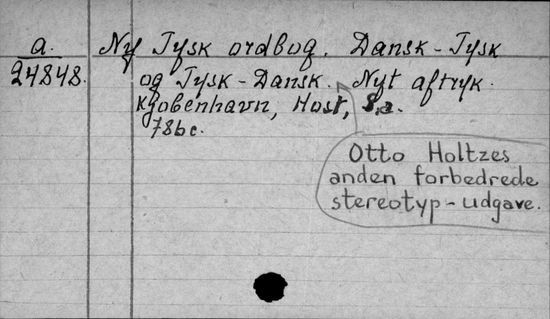 a.
24848.
Ny Tysk ordbog. Dansk-Tysk
og Tysk-Dansk. Nyt aftryk.
Kjøbenhavn, Høst, s.a.
Otto Holtzes
anden forbedrede
stereotyp-udgave.